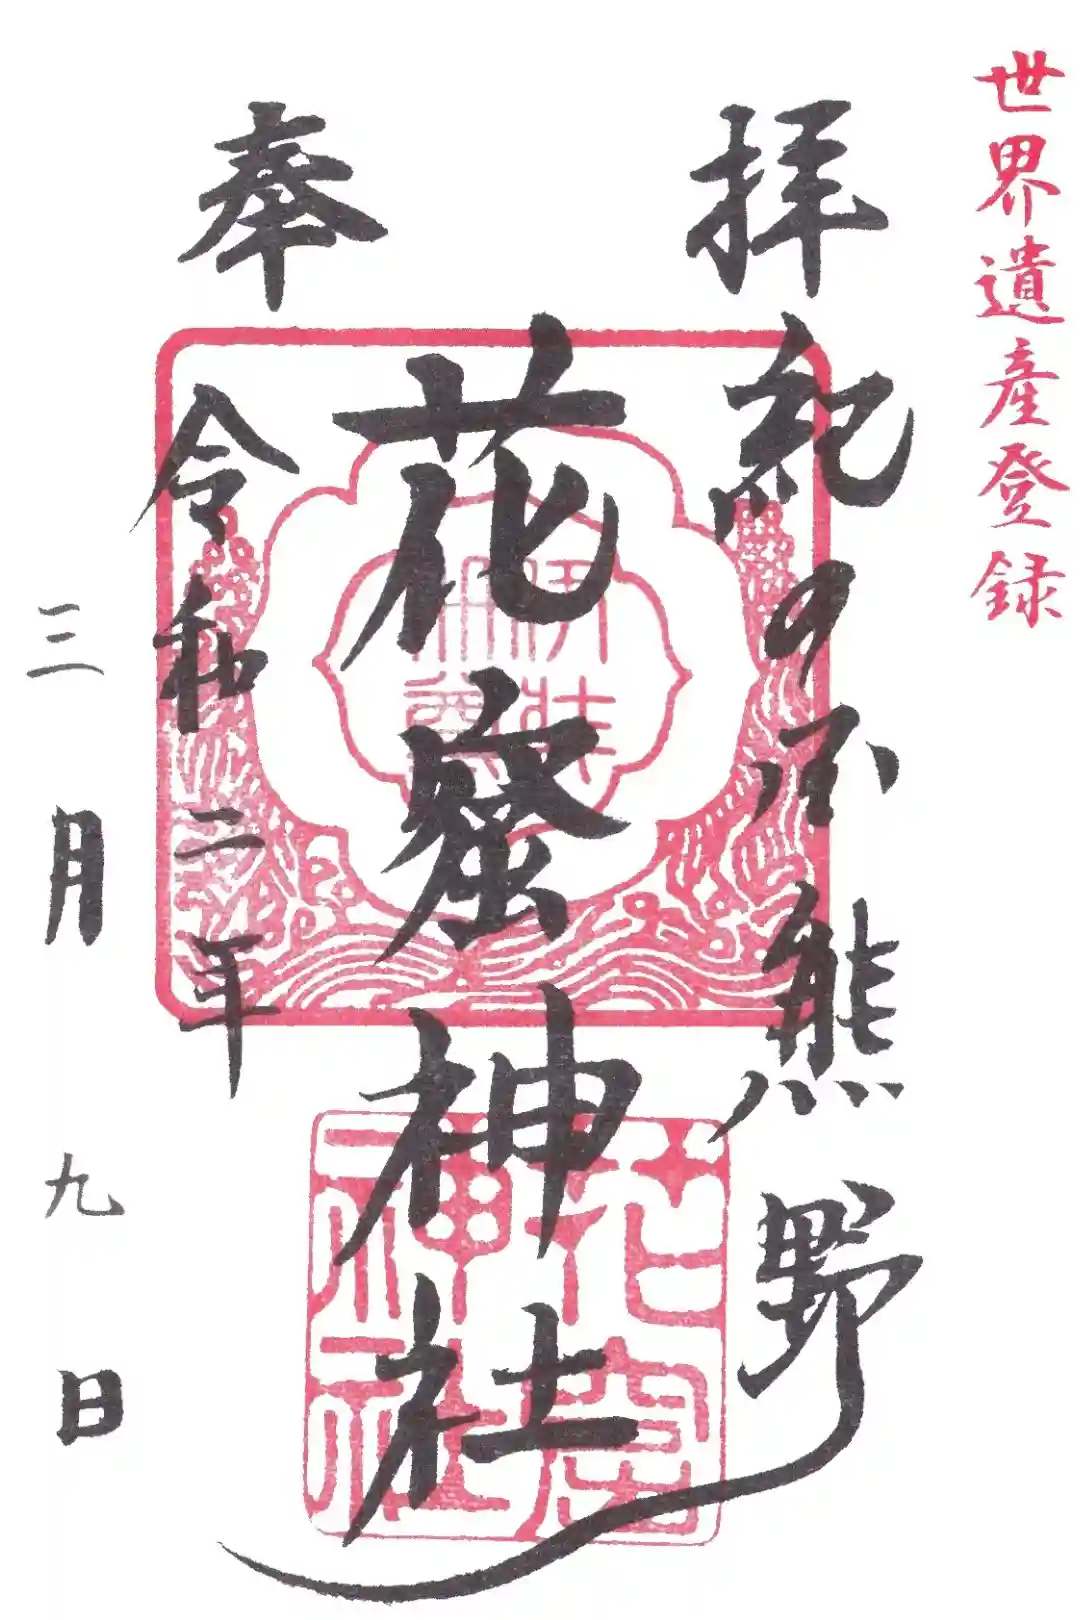 世界遺産登録
奉拝
紀の国熊野
花窟神社
令和二年
三月九日
伊弉
冊尊
花窟
神社